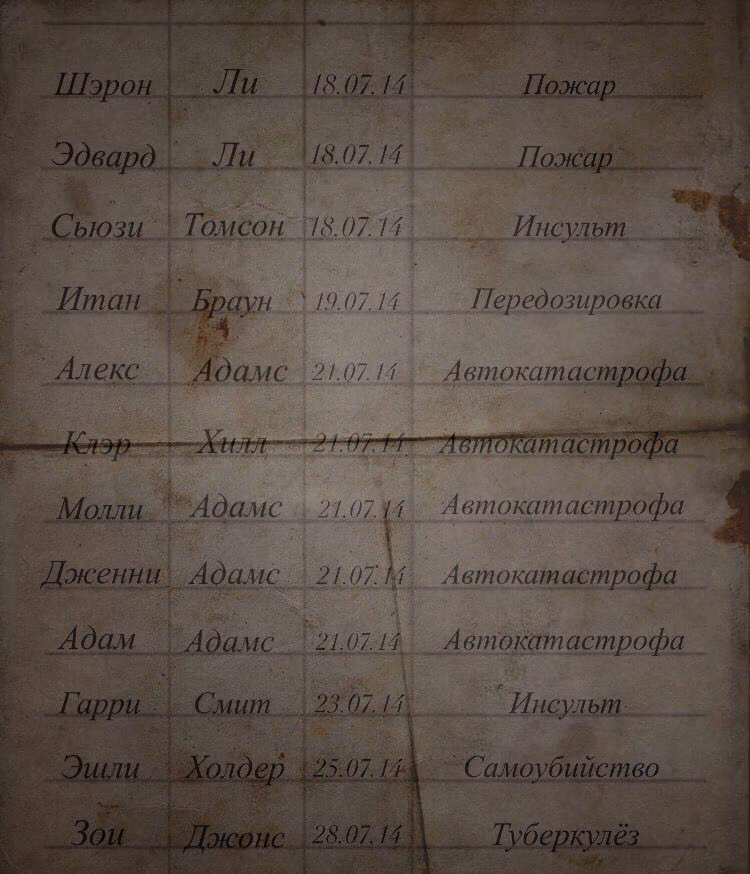 Шэрон Ли 18.07.14 Пожар
Эдвард Ли 18.07.14 Пожар
Сьюзи Томсон 18.07.14 Инсульт
Итан Браун 19.07.14 Передозировка
Алекс Адамс 21.07.14 Автокатастрофа
Клэр Хилл 21.07.14 Автокатастрофа
Молли Адамс 21.07.14 Автокатастрофа
Дженни Адамс 21.07.14 Автокатастрофа
Адам Адамс 21.07.14 Автокатастрофа
Гарри Смит 23.07.14 Инсульт
Эшли Холдер 25.07.14 Самоубийство
Зои Джонс 28.07.14 Туберкулёз